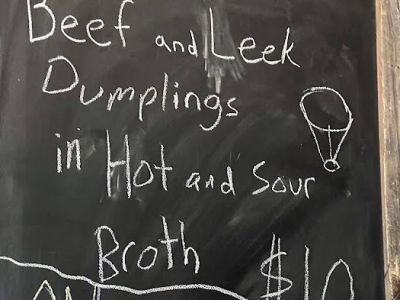 Beef and Leek
Dumplings
in Hot and Sour
Broth $10